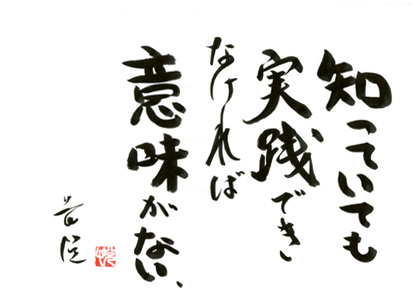 知っていても
実践でき
なければ
意味がない、